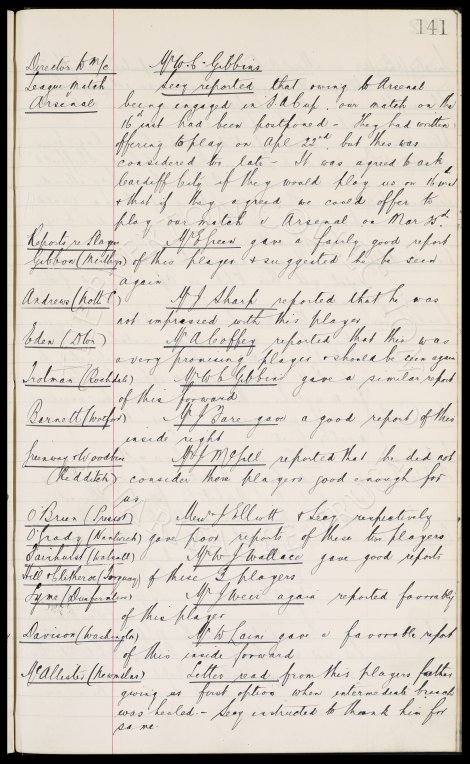 141
Director to M/c Mr W. C. Gibbins
League Match Secy reported that owing to Arsenal
v Arsenal being engaged in F A Cup, our match on the
16th inst had been postponed - They had written
offering to play on Apl 22nd, but this was
considered too late - It was agreed to ask
Cardiff City if they would play us on 16th inst
& that if they agreed we could offer to
play our match v Arsenal on Mar
Reports re Players Mr E Green gave a fairly good report
Gibbon (Merthyr) of this player & suggested he be seen
again
Andrews (Notts C) Mr J Sharp reported that he was
not impressed with this player
Eden (Dbn) Mr A Coffey reported that this was
a very promising player & should be seen again
Trotman (Rochdale) Mr W C Gibbins gave a similar report
of this forward
Barnett (Watford) Mr J Fare gave a good report of this
inside right
Greenway & Woodbine Mr J McGill reported that he did not
Redditch) consider those players good enough for
us
O'Brien (Prescot) Messrs J Elliott & Secy respectively
O'Grady (Nantwich) gave poor reports of these two players
Fairhurst (Walsall) Mr W J Wallace gave good reports
Hill & Clitheroe (Torquay) of these 3 players
Lyne (Dunfermline) Mr J Weir again reported favorably
of this player
Davison (Washington) Mr W Laine gave a favorable report
of this inside forward
McAllister (Newmilns) Letter read from this players father
giving us first option when intermediate breach
was healed - Secy instructed to thank him for
same